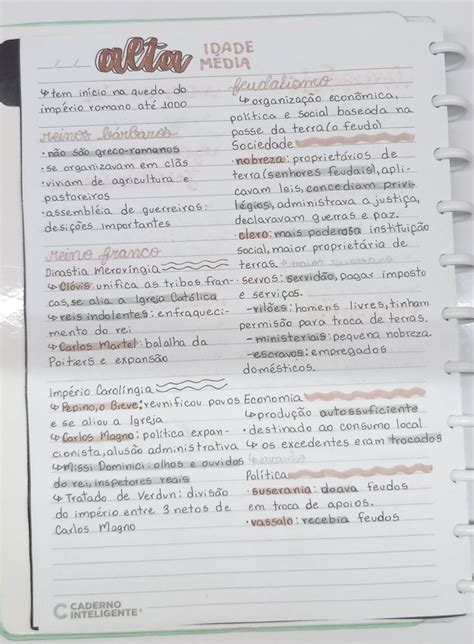 alta IDADE
MÉDIA
↳ tem início na queda do
império romano até 1000
reinos bárbaros
• não são greco-romanos
• se organizavam em clãs
• viviam de agricultura e
pastoreiros
• assembléia de guerreiros:
desições importantes
reino franco
Dinastia Merovíngia
↳ Clóvis: unifica as tribos fran-
cas, se alia a Igreja Católica
↳ reis indolentes: enfraqueci-
mento do rei
↳ Carlos Martel: batalha da
Poitiers e expansão
Império Carolíngia
↳ Pepino, o Breve: reunificou povos
e se aliou a Igreja
↳ Carlos Magno: política expan-
cionista, alusão administrativa
↳ Missi Dominici: olhos e ouvidos
do rei, inspetores reais
↳ Tratado de Verdun: divisão
do império entre 3 netos de
Carlos Magno
feudalismo
↳ organização econômica,
política e social baseada na
posse da terra (o feudo)
Sociedade
• nobreza: proprietários de
terra (senhores feudais), apli-
cavam leis, concediam privi
légios, administrava a justiça,
declaravam guerras e paz.
• clero: mais poderosa instituição
social, maior proprietária de
terras.
• servos: servidão, pagar imposto
e serviços.
- vilões: homens livres, tinham
permissão para troca de terras.
- ministeriais: pequena nobreza.
- escravos: empregados
domésticos.
Economia
↳ produção autossuficiente
• destinado ao consumo local
↳ os excedentes eram trocados
Política
• suserania: doava feudos
em troca de apoios.
• vassalo: recebia feudos
CADERNO
INTELIGENTE